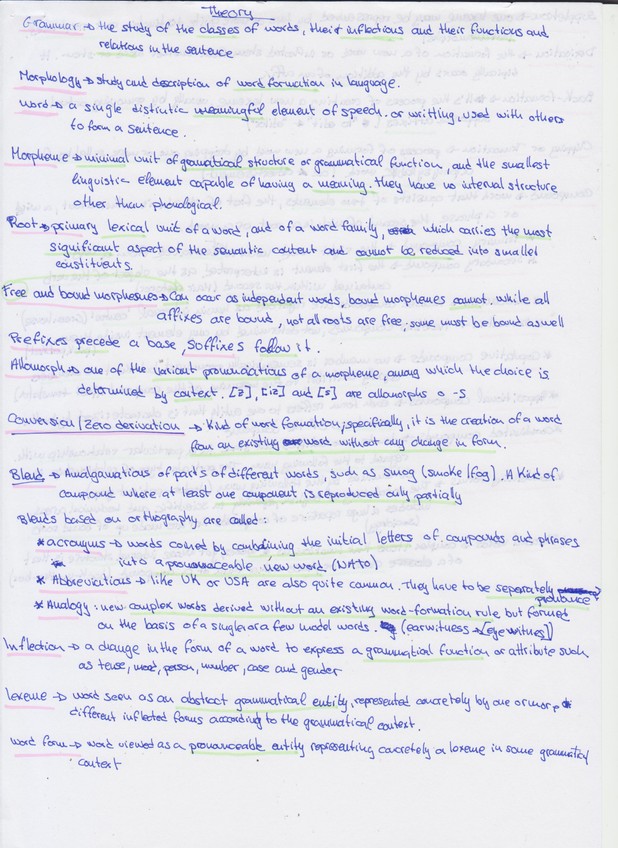 Theory
Grammar → the study of the classes of words, their inflections and their functions and
relations in the sentence
Morphology → study and description of word formation in language.
Word → a single distinctic meaningful element of speech or writting, used with others
to form a sentence.
Morpheme → minimal unit of gramatical structure or grammatical function, and the smallest
linguistic element capable of having a meaning. they have no interval structure
other than phonological.
Root → primary lexical unit of a word, and of a word family, which carries the most
significant aspect of the semantic content and cannot be reduced into smaller
constituents.
Free and bound morphesmes → Can ocar as independent words, bound morphemes cannot, while all
affixes are bound, not all roots are free; some must be bound aswell
Prefixes precede a base, suffixes follow it.
Allomorph → one of the variant pronunciations of a morpheme, among which the choice is
determined by context. [z], [iz] and [s] are allomorphs o -s
Conversion / Zero derivation → Kind of word formation; specifically, it is the creation of a word
from an existing word without any change in form.
Blend → Amalgamations of parts of different words, such as smog (smoke/fog). A Kind of
compound where at least one component is reproduced only partially
Blends based on orthography are called:
* acronyms → words coined by combaining the initial letters of compounds and phrases
into a pronounceable new word. (NATO)
* Abbreviations → like UK or USA are also quite common. They have to be seperately
pronounce
* Analogy: new complex words derived without an existing word-formation rule but formed
on the basis of a single or a few model words. (earwitness → [eyewitness])
Inflection → a change in the form of a word to express a grammatical function or attribute such
as tense, mood, person, number, case and gender
lexeme → word seen as an abstract grammatical entity, represented concretely by one or more
different inflected forms according to the grammatical context.
word form → word viewed as a pronounceable entity representing concretely a lexeme in some grammatical
context